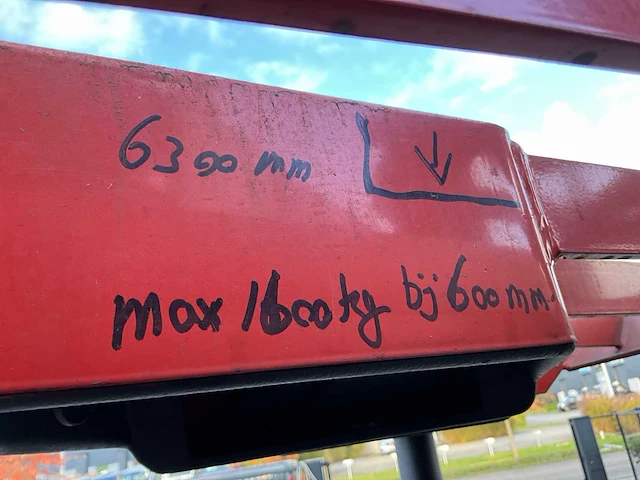 6300 mm
max 1600kg bij 600mm.